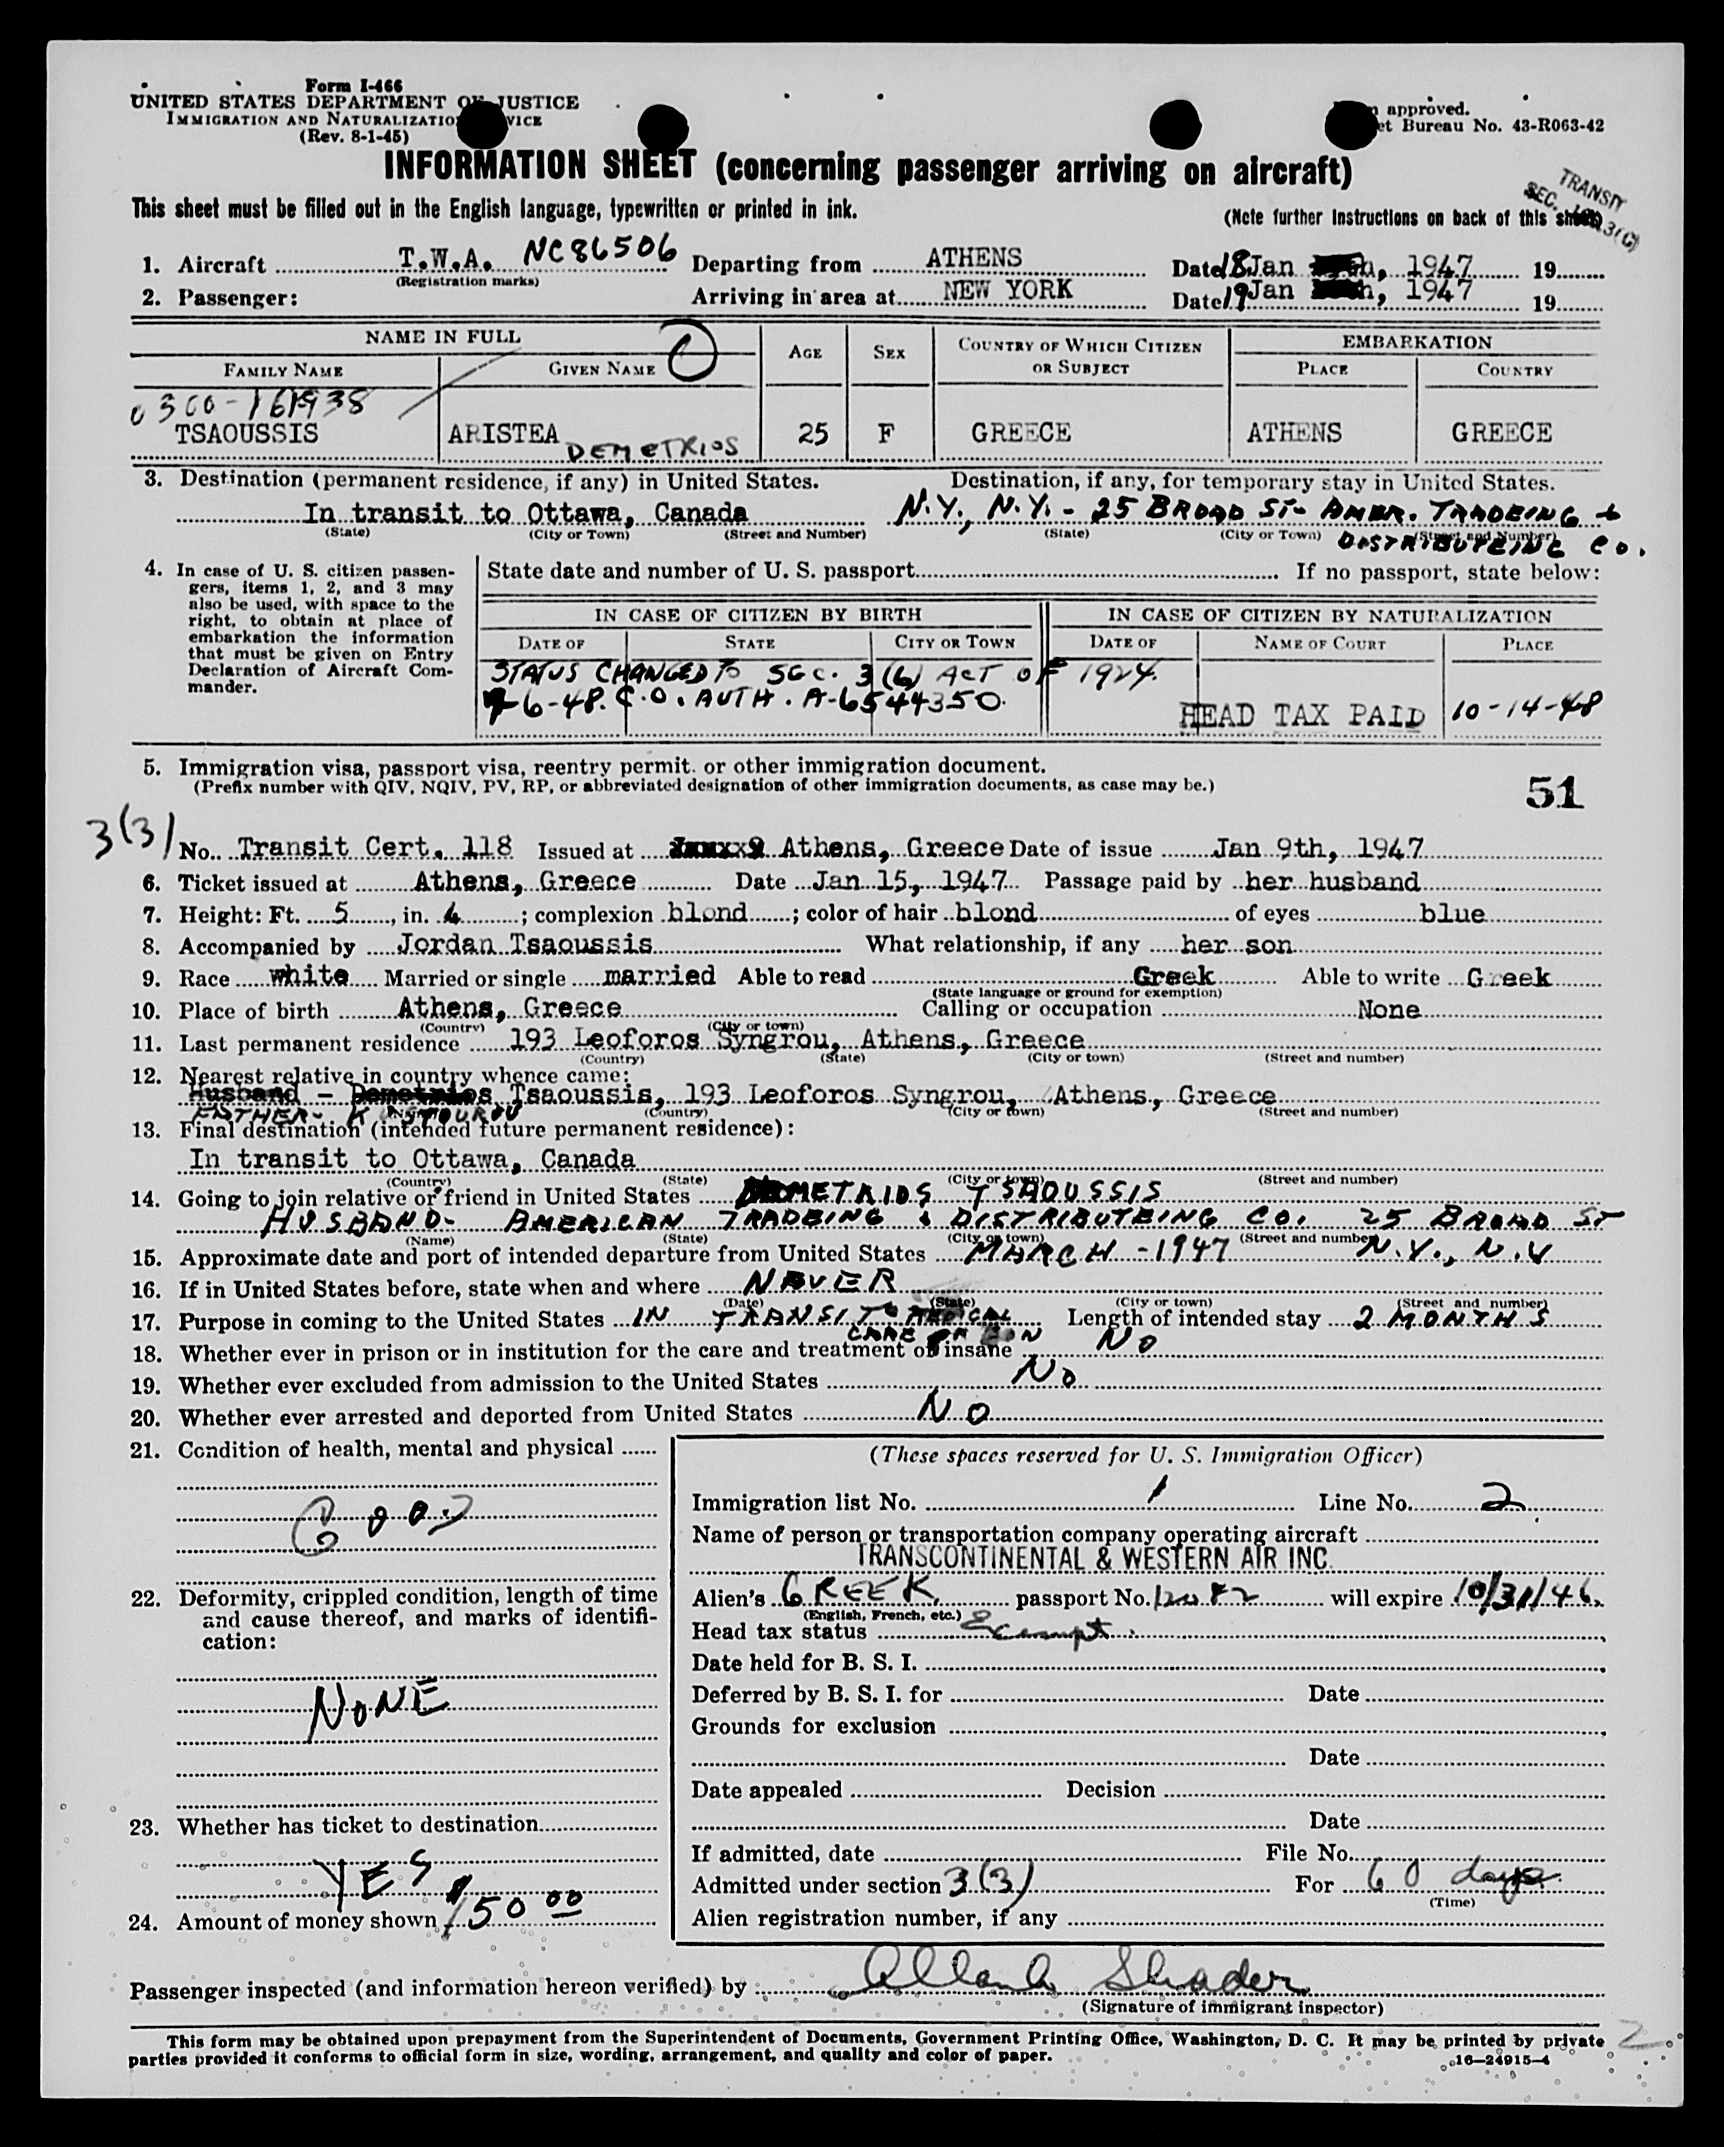 Form I-466
UNITED STATES DEPARTMENT OF JUSTICE
IMMIGRATION AND NATURALIZATIO VICE
(Rev. 8-1-45)
approved.
et Bureau No. 43-R063-42
INFORMATION SHEET (concerning passenger arriving on aircraft)
TRANSIT
SEC. 3(C)
This sheet must be filled out in the English language, typewritten or printed in ink.
(Note further instructions on back of this sheet)
1. Aircraft T.W.A. NC86506 Departing from ATHENS Date 18 Jan 1947 19
(Registration marks)
2. Passenger: Arriving in area at NEW YORK Date 19 Jan 1947 19
NAME IN FULL AGE SEX COUNTRY OF WHICH CITIZEN OR SUBJECT EMBARKATION
FAMILY NAME GIVEN NAME PLACE COUNTRY
0300-161938
TSAOUSSIS ARISTEA DEMETRIOS 25 F GREECE ATHENS GREECE
3. Destination (permanent residence, if any) in United States. Destination, if any, for temporary stay in United States.
In transit to Ottawa, Canada N.Y., N.Y. - 25 BROAD ST- AMER. TRADEING &
(State) (City or Town) (Street and Number) (State) (City or Town) (Street and Number)
DISTRIBUTEING CO.
4. In case of U. S. citizen passengers, items 1, 2, and 3 may also be used, with space to the right, to obtain at place of embarkation the information that must be given on Entry Declaration of Aircraft Commander.
State date and number of U. S. passport If no passport, state below:
IN CASE OF CITIZEN BY BIRTH IN CASE OF CITIZEN BY NATURALIZATION
DATE OF STATE CITY OR TOWN DATE OF NAME OF COURT PLACE
STATUS CHANGED TO SEC. 3(6) ACT OF 1924.
7-6-48. C.O. AUTH. A-6544350.
HEAD TAX PAID 10-14-48
5. Immigration visa, passport visa, reentry permit, or other immigration document.
(Prefix number with QIV, NQIV, PV, RP, or abbreviated designation of other immigration documents, as case may be.)
51
3(3)
No. Transit Cert. 118 Issued at Athens, Greece Date of issue Jan 9th, 1947
6. Ticket issued at Athens, Greece Date Jan 15, 1947 Passage paid by her husband
7. Height: Ft. 5, in. 4; complexion blond; color of hair blond of eyes blue
8. Accompanied by Jordan Tsaoussis What relationship, if any her son
9. Race white Married or single married Able to read Greek Able to write Greek
(State language or ground for exemption)
10. Place of birth Athens, Greece Calling or occupation None
(Country) (City or town)
11. Last permanent residence 193 Leoforos Syngrou, Athens, Greece
(Country) (State) (City or town) (Street and number)
12. Nearest relative in country whence came:
Husband - Demetrios Tsaoussis, 193 Leoforos Syngrou, Athens, Greece
(Country) (City or town) (Street and number)
13. Final destination (intended future permanent residence):
In transit to Ottawa, Canada
(Country) (State) (City or town) (Street and number)
14. Going to join relative or friend in United States DEMETRIOS TSAOUSSIS
HUSBAND- AMERICAN TRADEING & DISTRIBUTEING CO. 25 BROAD ST
(Name) (State) (City or town) (Street and number) N.Y., N.Y
15. Approximate date and port of intended departure from United States MARCH - 1947
16. If in United States before, state when and where NEVER
(Date) (State) (City or town) (Street and number)
17. Purpose in coming to the United States IN TRANSIT MEDICAL Length of intended stay 2 MONTHS
CARE
18. Whether ever in prison or in institution for the care and treatment of insane NO
19. Whether ever excluded from admission to the United States NO
20. Whether ever arrested and deported from United States NO
21. Condition of health, mental and physical
GOOD
22. Deformity, crippled condition, length of time and cause thereof, and marks of identification:
NONE
23. Whether has ticket to destination
YES
24. Amount of money shown $150 00
(These spaces reserved for U. S. Immigration Officer)
Immigration list No. 1 Line No. 2
Name of person or transportation company operating aircraft
TRANSCONTINENTAL & WESTERN AIR INC.
Alien's GREEK passport No. will expire 10/31/46.
(English, French, etc.)
Head tax status Exempt.
Date held for B. S. I.
Deferred by B. S. I. for Date
Grounds for exclusion
Date
Date appealed Decision
Date
If admitted, date File No.
Admitted under section 3(3) For 60 days
(Time)
Alien registration number, if any
Passenger inspected (and information hereon verified) by Shader
(Signature of immigrant inspector)
This form may be obtained upon prepayment from the Superintendent of Documents, Government Printing Office, Washington, D. C. It may be printed by private
parties provided it conforms to official form in size, wording, arrangement, and quality and color of paper.
16—24915-4
2